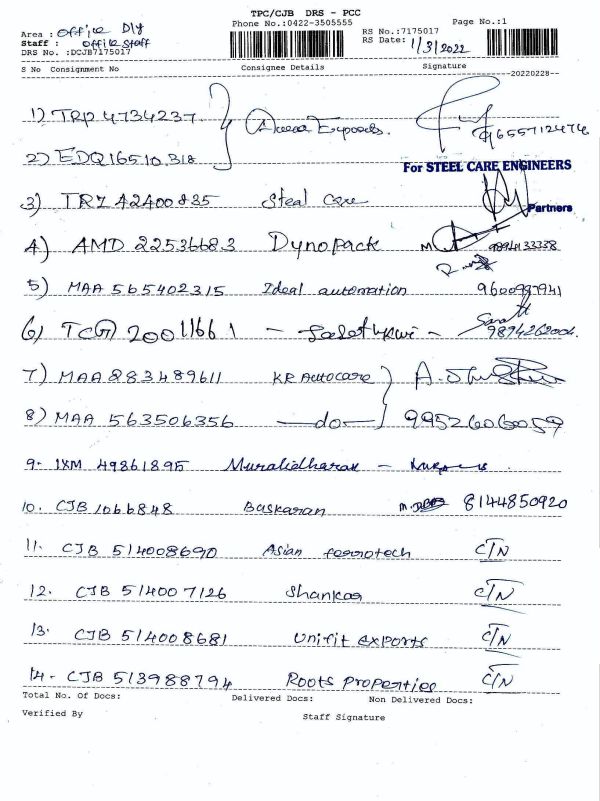 TPC/CJB DRS - PCC
Phone No.:0422-3505555
Page No.:1
Area : office Dly
Staff : office staff
DRS No. :DCJB7175017
RS No.:7175017
RS Date: 1/3/2022
S No Consignment No Consignee Details Signature
20220228
1) TRP 4734237
Exports.
9655712474
2) EDQ 16510318
For STEEL CARE ENGINEERS
3) TRZ 42400835 Steal care
Partners
4) AMD 22536683 Dynopack 9894133338
5) MAA 565402315 Ideal automation 9600987941
6) TCG 20011661
9894262004
7) MAA 883489611 KR Autocare
8) MAA 563506356 —do— 9952606059
9. IXM 49861895 Muralidharan -
10. CJB 1066848 Baskaran 8144850920
11. CJB 514008690 Asian ferrotech C/N
12. CJB 514007126 Shankar C/N
13. CJB 514008681 Unifit exports C/N
14- CJB 513988794 Roots Properties C/N
Total No. Of Docs: Delivered Docs: Non Delivered Docs:
Verified By
Staff Signature